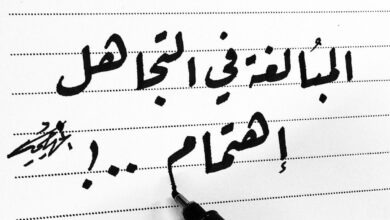 المُبالغة في التجاهل
إهتمام ..!